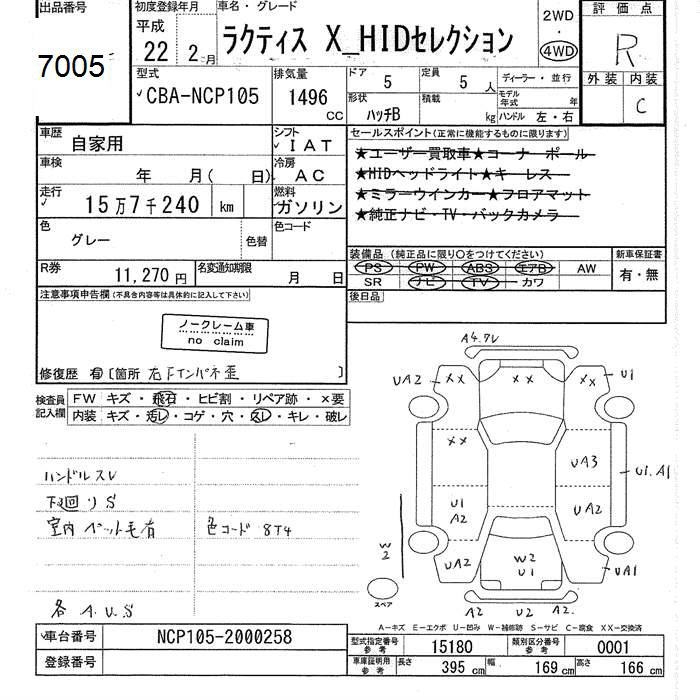 出品番号
7005
初度登録年月
平成
22 2月
車名・グレード
ラクティス X_HIDセレクション
2WD
・
4WD
評価点
R
外装 内装
C
型式
CBA-NCP105
排気量
1496
CC
ドア
5
定員
5人
ディーラー・並行
モデル年式 年
形状
ハッチB
積載
kg
ハンドル 左・右
車歴
自家用
シフト
IAT
車検
年 月( 日)
冷房
AC
走行
15万7千240 km
燃料
ガソリン
色
グレー
色替
色コード
R券
11,270円
名変通知期限
月 日
セールスポイント(正常に機能するものに限ります)
★ユーザー買取車★コーナーポール
★HIDヘッドライト★キーレス
★ミラーウインカー★フロアマット
★純正ナビ・TV・バックカメラ
装備品 (純正品に限り○をつけてください)
PS PW ABS エアB AW
SR ナビ TV カワ
新車保証書
有・無
後日品
注意事項申告欄(不具合内容等は具体的に記入して下さい)
ノークレーム車
no claim
修復歴 有 [箇所 右Fインパネ歪 ]
検査員記入欄
FW キズ・飛石・ヒビ割・リペア跡・×要
内装 キズ・汚し・コゲ・穴・スレ・キレ・破レ
ハンドルスレ
下廻りS
室内ペット毛有
色コード 8T4
各 A.U.S
A4.7V
UA2
XX
XX
XX
U1
XX
UA3
U1.A1
U1
A2
UA2
W
2
UA2
W2
U1
UA1
スペア
A2
U2
A2.
A-キズ E-エクボ U-凹み W-補修跡 S-サビ C-腐食 XX-交換済
車台番号
NCP105-2000258
登録番号
型式指定番号
参考
15180
類別区分番号
参考
0001
車庫証明用
参考
長さ
395 cm
幅
169 cm
高さ
166 cm